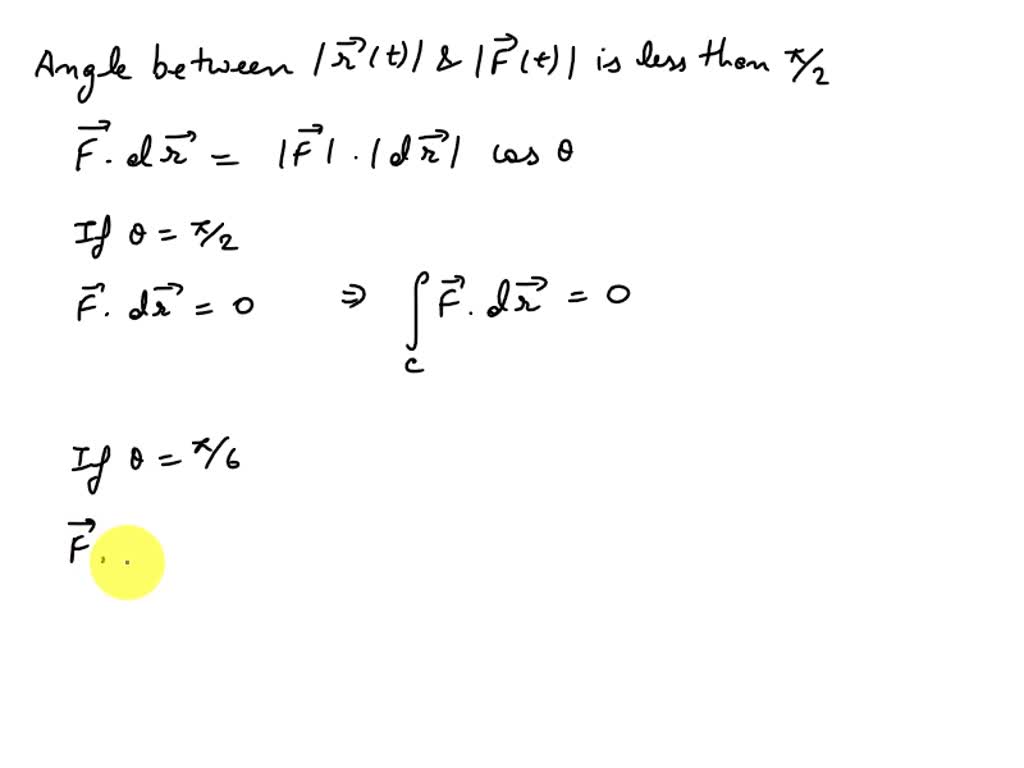 Angle between |r⃗(t)| & |F⃗(t)| is less then π/2
F⃗ . dr⃗ = |F⃗| . |dr⃗| cos θ
If θ = π/2
F⃗ . dr⃗ = 0 ⇒ ∫_C F⃗ . dr⃗ = 0
If θ = π/6
F⃗ .